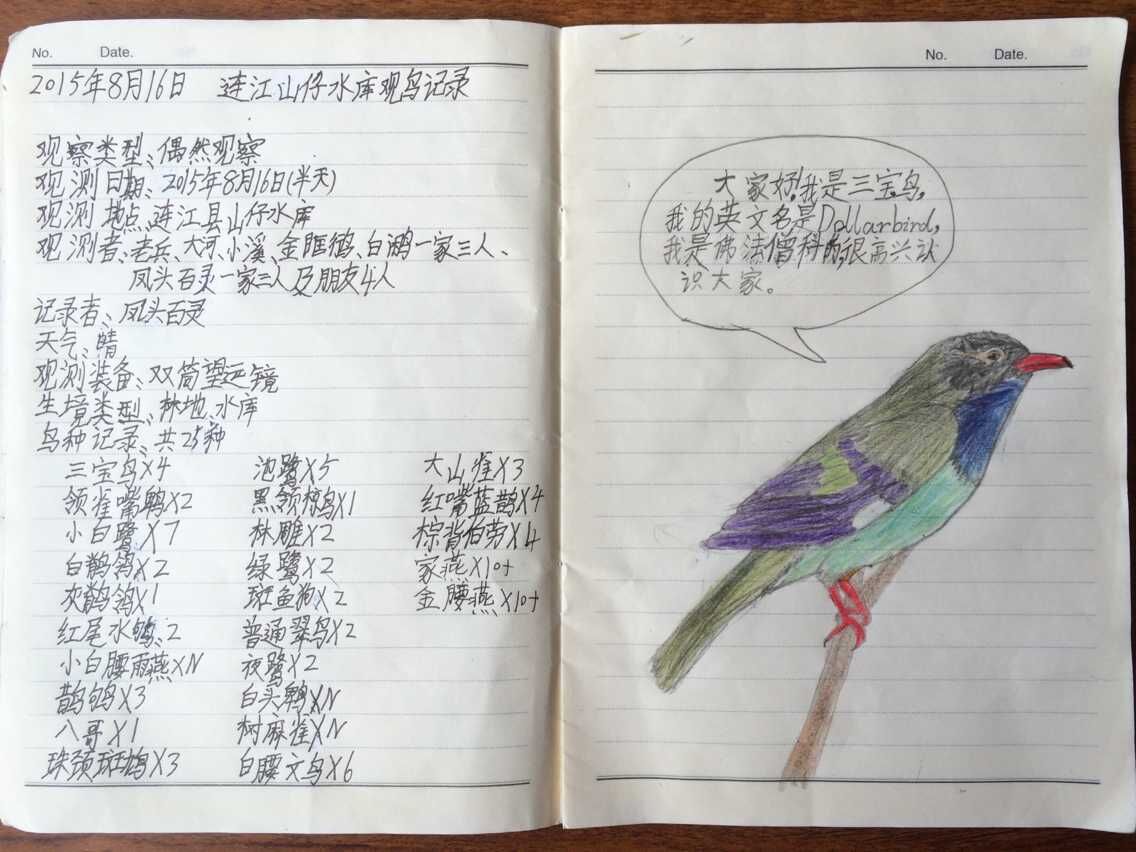 No. Date.
2015年8月16日 连江山仔水库观鸟记录
观察类型、偶然观察
观测日期、2015年8月16日(半天)
观测地点、连江县山仔水库
观测者、老兵、大河、小溪、金眶鸻、白鹇一家三人、
凤头百灵一家三人及朋友4人
记录者、凤头百灵
天气、晴
观测装备、双筒望远镜
生境类型、林地、水库
鸟种记录、共25种
三宝鸟X4 池鹭X5 大山雀X3
领雀嘴鹎X2 黑领椋鸟X1 红嘴蓝鹊X4
小白鹭X7 林雕X2 棕背伯劳X4
白鹡鸰X2 绿鹭X2 家燕X10+
灰鹡鸰X1 斑鱼狗X2 金腰燕X10+
红尾水鸲、2 普通翠鸟X2
小白腰雨燕XN 夜鹭X2
鹊鸲X3 白头鹎XN
八哥X1 树麻雀XN
珠颈斑鸠X3 白腰文鸟X6
No. Date.
大家好!我是三宝鸟,
我的英文名是Dollarbird,
我是佛法僧科的,很高兴认
识大家。